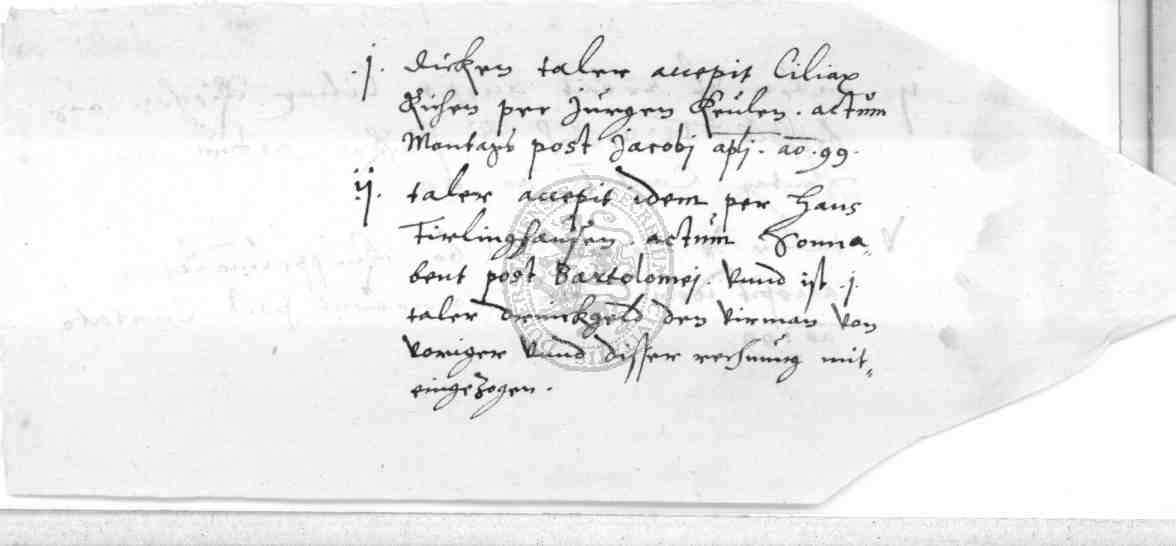 .j. dicken taler accepit Ciliax
Eichen per Jürgen Keulen . actum
Montags post Jacobj apli . ao . 99 .
ij . taler accepit idem per Hans
Tirlinghausen . actum Sonna„
bent post Bartolomej . vnnd ist .j.
taler drinckgeld den virman von
voriger vnnd disser rechnung mit„
eingezogen .